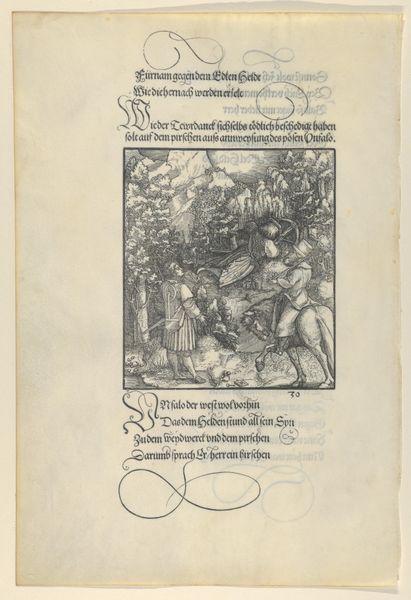 Fürnam gegen dem Edlen Helde
Wie die hernach werden erzelt
Wie der Tewrdanck sich selbs tödlich beschedigt haben
solt auf dem pirschen auß anweysung des pösen Unfalo.
30
UNfalo der west wol vorhin
Das dem Helden stund all sein Syn
Zu dem weydwerck vnd dem pirschen
Darumb sprach Er herr ein hirschen